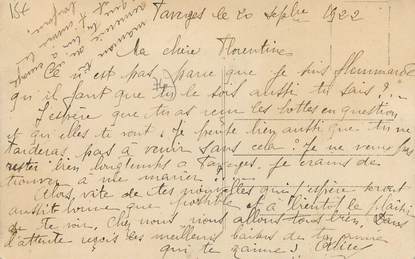 15f
Taverges le 20 Septbre 1922
Ma chère Florentine
Ce n'est pas parce que je suis flemmarde
qu'il faut que tu le sois aussi tu sais ? -
J'espère que tu as reçu les bottes en question
et qu'elles te vont. Je pense bien aussi que tu ne
tarderas pas à venir sans cela ? Je ne veux pas
rester bien longtemps à Taverges, je crains de
trouver à me marier !
Alors vite de tes nouvelles que j'espère seront
aussi bonne que possible et à bientôt le plaisir
de te voir. Chez nous nous allons tous bien. Dans
l'attente reçois les meilleurs baisers de ton amie
qui te aime ! Alice